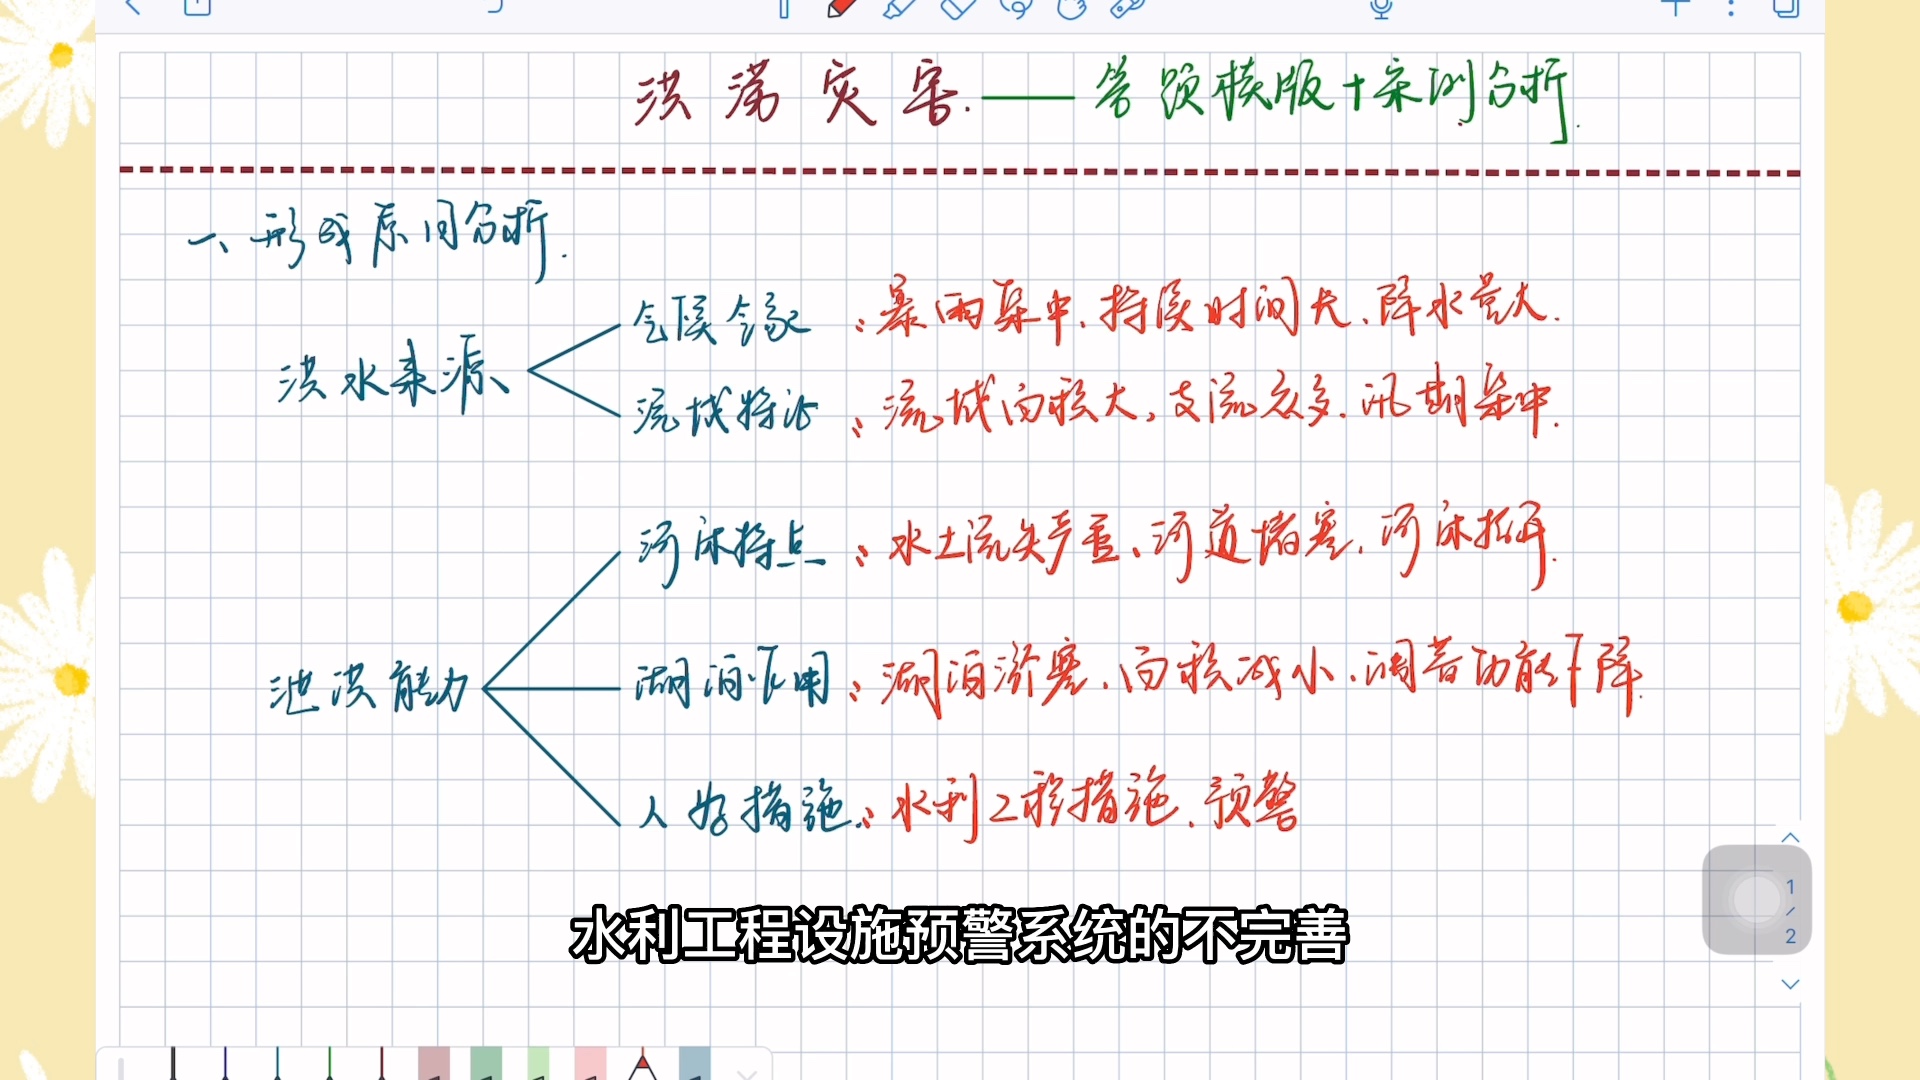 洪涝灾害.——答题模版+案例分析.
一、形成原因分析.
洪水来源
气候气象:暴雨集中、持续时间长、降水量大.
流域特征:流域面积大、支流众多、汛期集中.
泄洪能力
河床特点:水土流失严重、河道堵塞、河床抬升.
湖泊作用:湖泊淤塞、面积减小、调蓄功能下降.
人为措施:水利工程措施、预警
水利工程设施预警系统的不完善
1/2